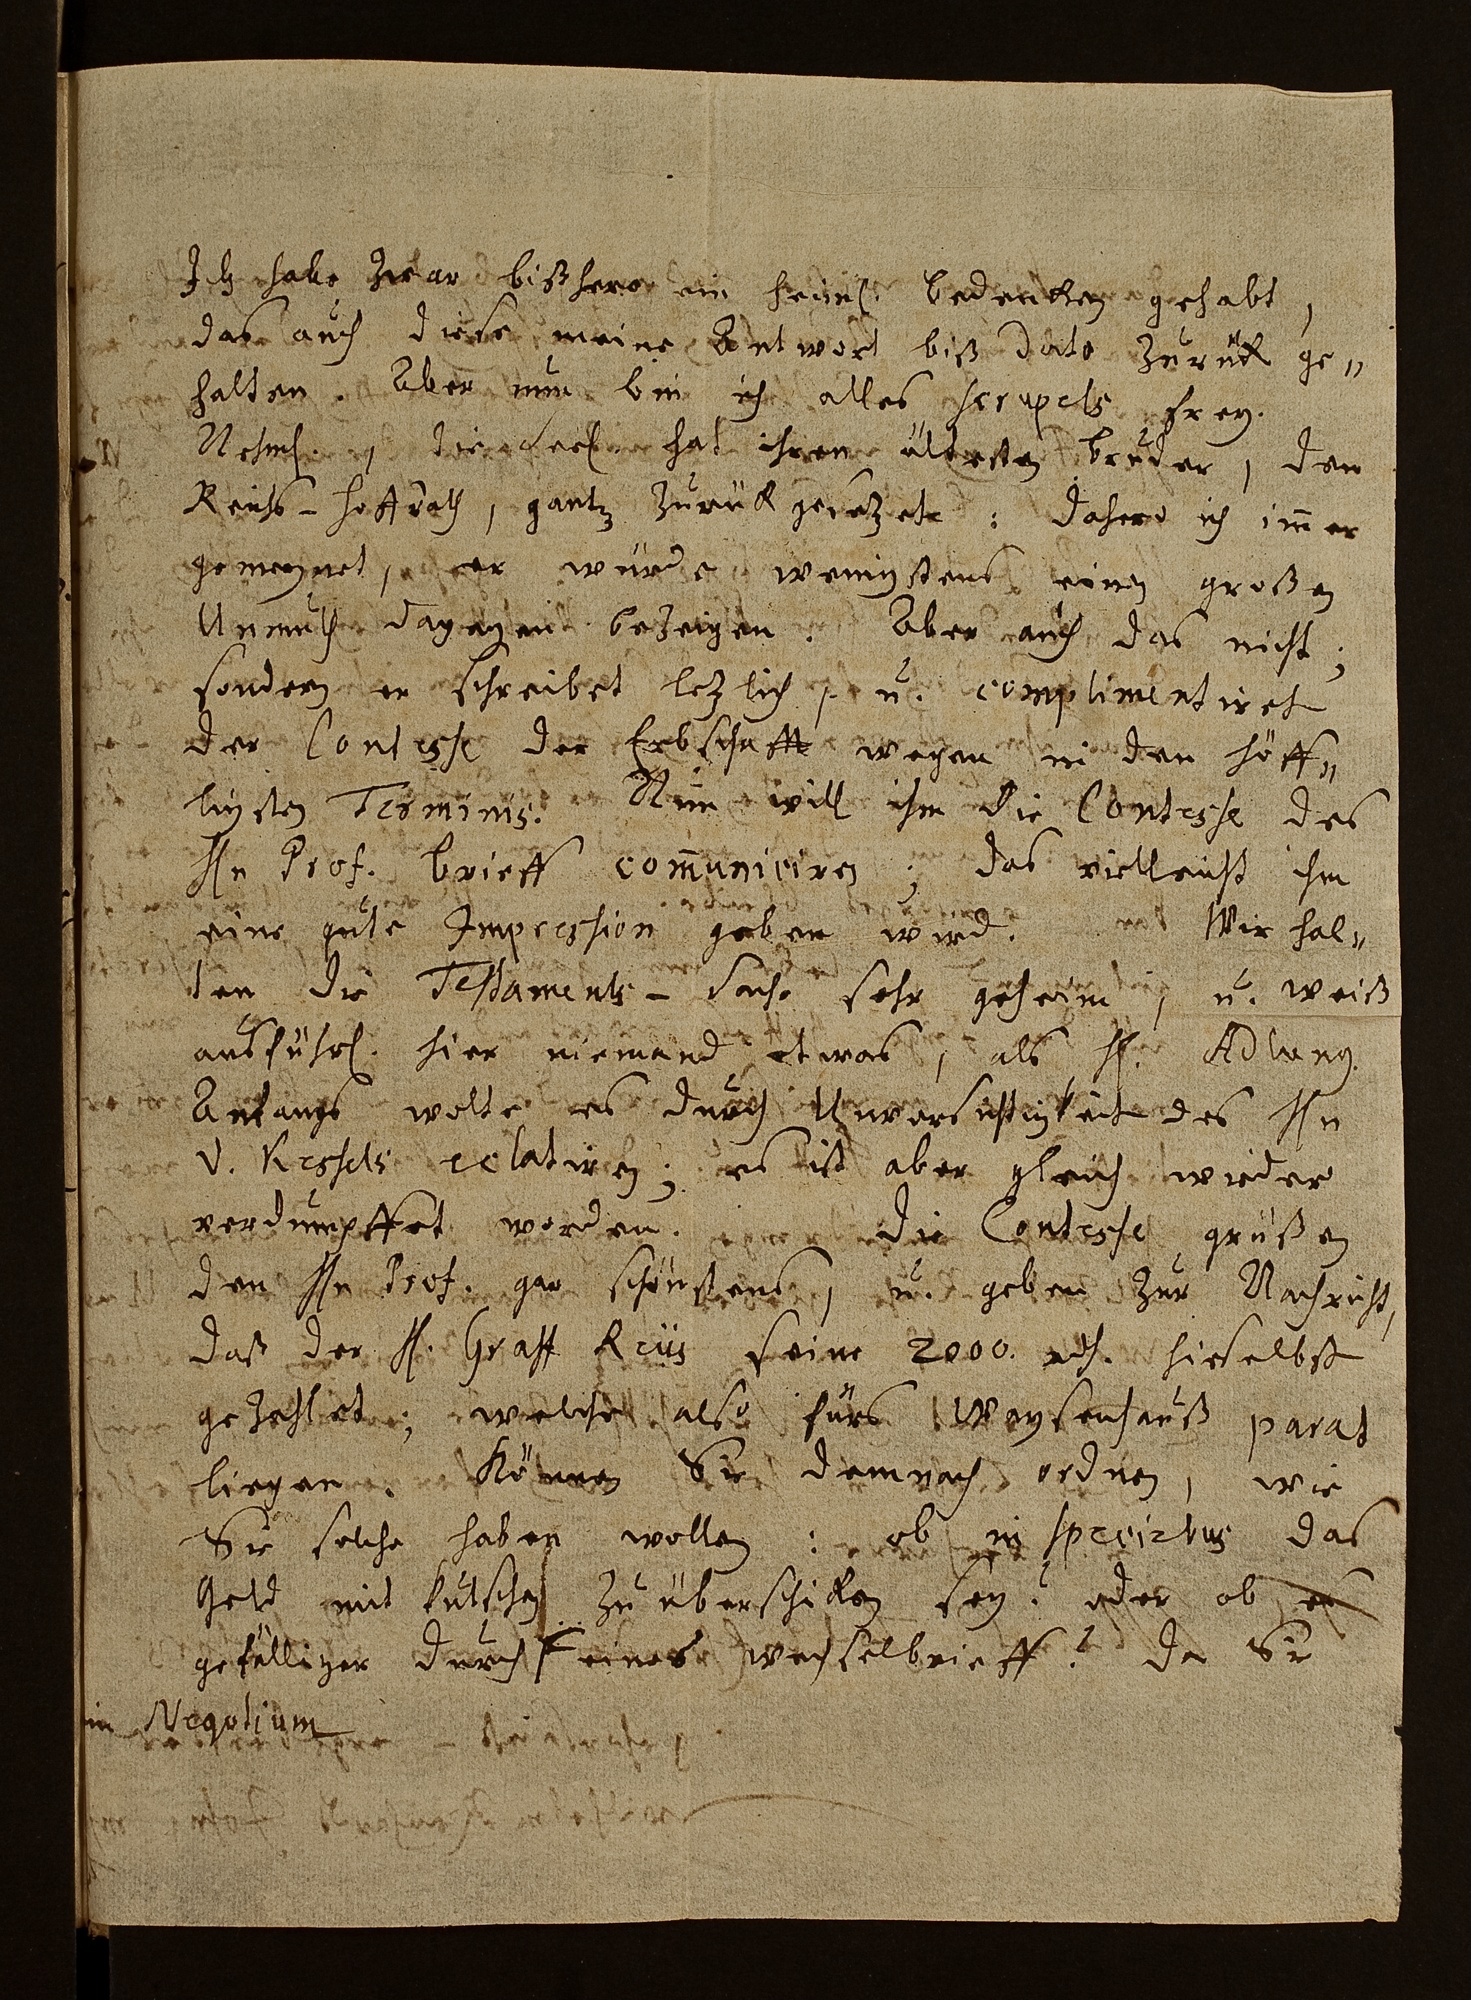 Ich habe zwar bißhero ein heiml. bedencken gehabt,
das auch diese meine Antwort biß dato zurück ge„
halten. Aber nun bin ich alles scrupels frey.
Nehml., die seel hat ihren ältesten bruder, den
Reichs-hoffrath, gantz zurück gesezet: dahero ich im̅er
gemeynet, er würde wenigstens einen großen
Unmuth dagegen bezeigen. Aber auch das nicht;
sondern er schreibet lezlich, u. complimentiret
der Contesse der Erbschafft wegen in den höff„
ligsten Terminis. Nun will ihm die Contesse des
Hn Prof. brieff com̅uniciren; das vielleicht ihm
eine gute Impression geben wird. Wir hal„
ten die Testaments-sache sehr geheim, u. weiß
ausführl. hier niemand etwas, als H. Adlung.
Anfangs wolte es durch Unvorsichtigkeit des Hn
v. Kessels eclatiren; es ist aber gleich wieder
verdumpffet worden. Die Contesse grüßen
den Hn Prof. gar schönstens, u. geben zur Nachricht,
daß der H. Graff Reüs seine 2000. rth. hieselbst
gezahlet; welche also fürs Waysenhauß parat
liegen. Können Sie demnach ordnen, wie
Sie solche haben wollen: ob in speciebus das
Geld mit kutschen zu überschicken sey? oder ob es
gefälliger durch eines wechselbrieff? da Sie
in Negotium